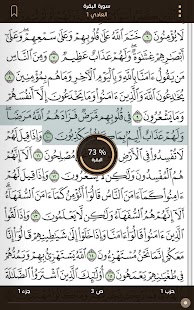 سورة البقرة
العادي 1
لَا يُؤْمِنُونَ ٦ خَتَمَ ٱللَّهُ عَلَىٰ قُلُوبِهِمْ وَعَلَىٰ سَمْعِهِمْ وَعَلَىٰٓ
أَبْصَٰرِهِمْ غِشَٰوَةٌ وَلَهُمْ عَذَابٌ عَظِيمٌ ٧ وَمِنَ ٱلنَّاسِ مَن يَقُولُ
ءَامَنَّا بِٱللَّهِ وَبِٱلْيَوْمِ ٱلْءَاخِرِ وَمَا هُم بِمُؤْمِنِينَ ٨ يُخَٰدِعُونَ ٱللَّهَ
وَٱلَّذِينَ ءَامَنُوا۟ وَمَا يَخْدَعُونَ إِلَّآ أَنفُسَهُمْ وَمَا
يَشْعُرُونَ ٩ فِى قُلُوبِهِم مَّرَضٌ فَزَادَهُمُ ٱللَّهُ مَرَضًا
وَلَهُمْ عَذَابٌ أَلِيمٌ يَكْذِبُونَ ١٠ وَإِذَا قِيلَ لَهُمْ
73 %
البقرة
لَا تُفْسِدُوا۟ فِى ٱلْأَرْضِ نَحْنُ مُصْلِحُونَ ١١
أَلَآ إِنَّهُمْ هُمُ ٱلْمُفْسِدُونَ لَّا يَشْعُرُونَ ١٢ وَإِذَا قِيلَ لَهُمْ
ءَامِنُوا۟ كَمَآ ءَامَنَ ٱلنَّاسُ قَالُوٓا۟ أَنُؤْمِنُ كَمَآ ءَامَنَ ٱلسُّفَهَآءُ
أَلَآ إِنَّهُمْ هُمُ ٱلسُّفَهَآءُ وَلَٰكِن لَّا يَعْلَمُونَ ١٣ وَإِذَا لَقُوا۟ ٱلَّذِينَ
ءَامَنُوا۟ قَالُوٓا۟ ءَامَنَّا وَإِذَا خَلَوْا۟ إِلَىٰ شَيَٰطِينِهِمْ قَالُوٓا۟ إِنَّا
مَعَكُمْ إِنَّمَا نَحْنُ مُسْتَهْزِءُونَ ١٤ ٱللَّهُ يَسْتَهْزِئُ بِهِمْ وَيَمُدُّهُمْ فِى
طُغْيَٰنِهِمْ يَعْمَهُونَ ١٥ أُو۟لَٰٓئِكَ ٱلَّذِينَ ٱشْتَرَوُا۟ ٱلضَّلَٰلَةَ
حزب 1
ص 3
جزء 1